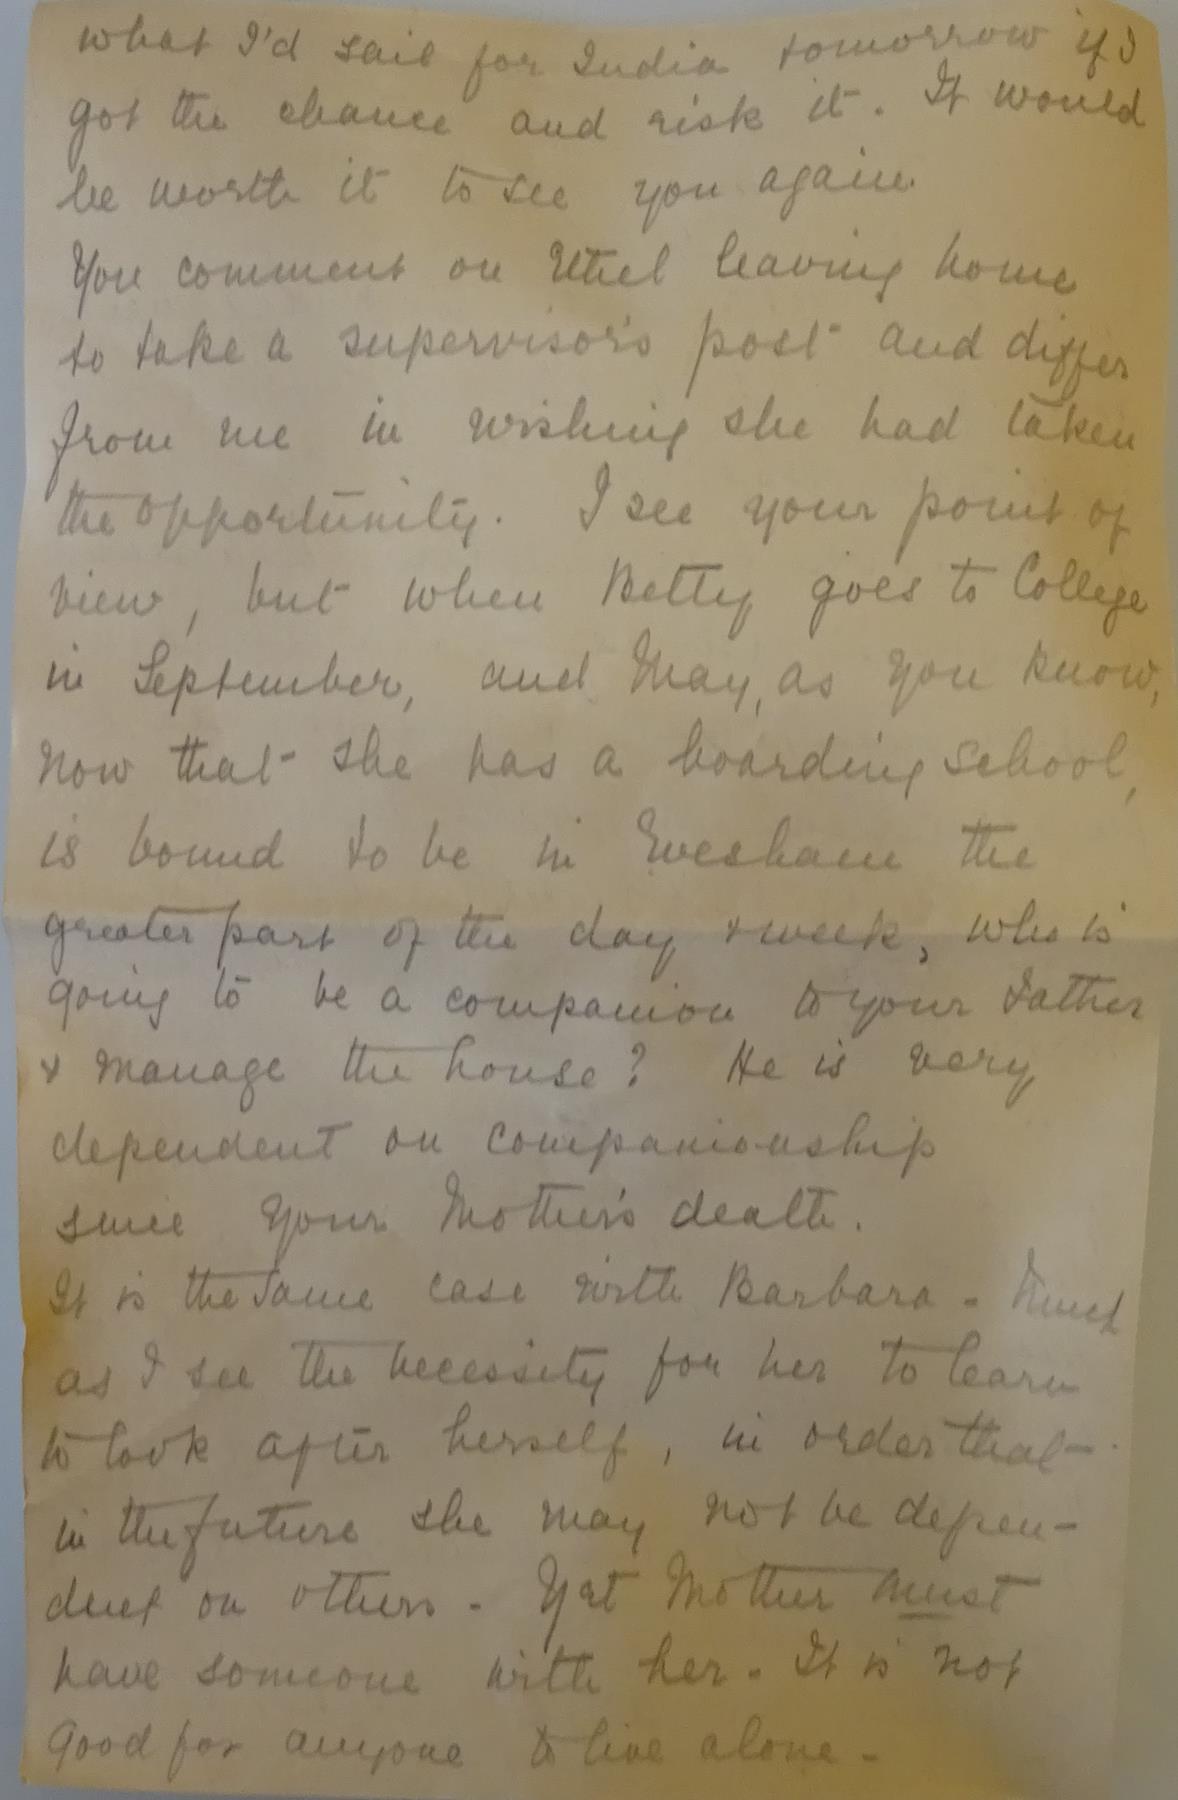 what I'd sail for India tomorrow if I
got the chance and risk it. It would
be worth it to see you again.
You comment on Ethel leaving home
to take a supervisor's post and differ
from me in wishing she had taken
the opportunity. I see your point of
view, but when Betty goes to College
in September, and May, as you know,
now that she has a boarding school,
is bound to be in Evesham the
greater part of the day & week, who is
going to be a companion to your Father
& manage the house? He is very
dependent on companionship
since your Mother's death.
It is the same case with Barbara - Much
as I see the necessity for her to learn
to look after herself, in order that
in the future she may not be depen-
dent on others - Yet Mother must
have someone with her - It is not
good for anyone to live alone -